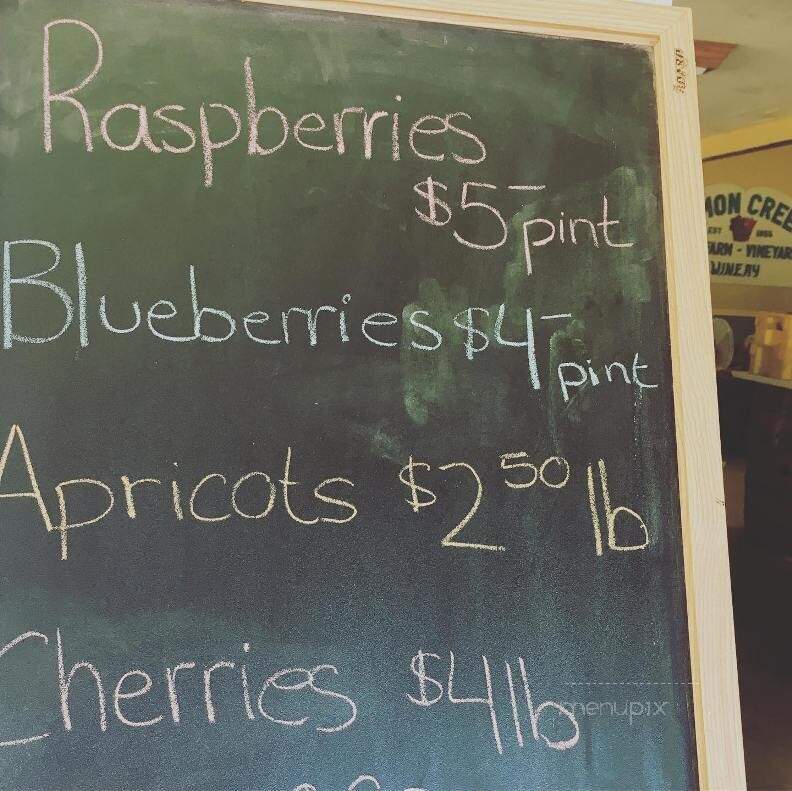 Raspberries
$5- pint
Blueberries $4-
pint
Apricots $2 50 lb
Cherries $4 lb
MON CREE
EST 1855
FARM - VINEYAR
WINERY
menupix